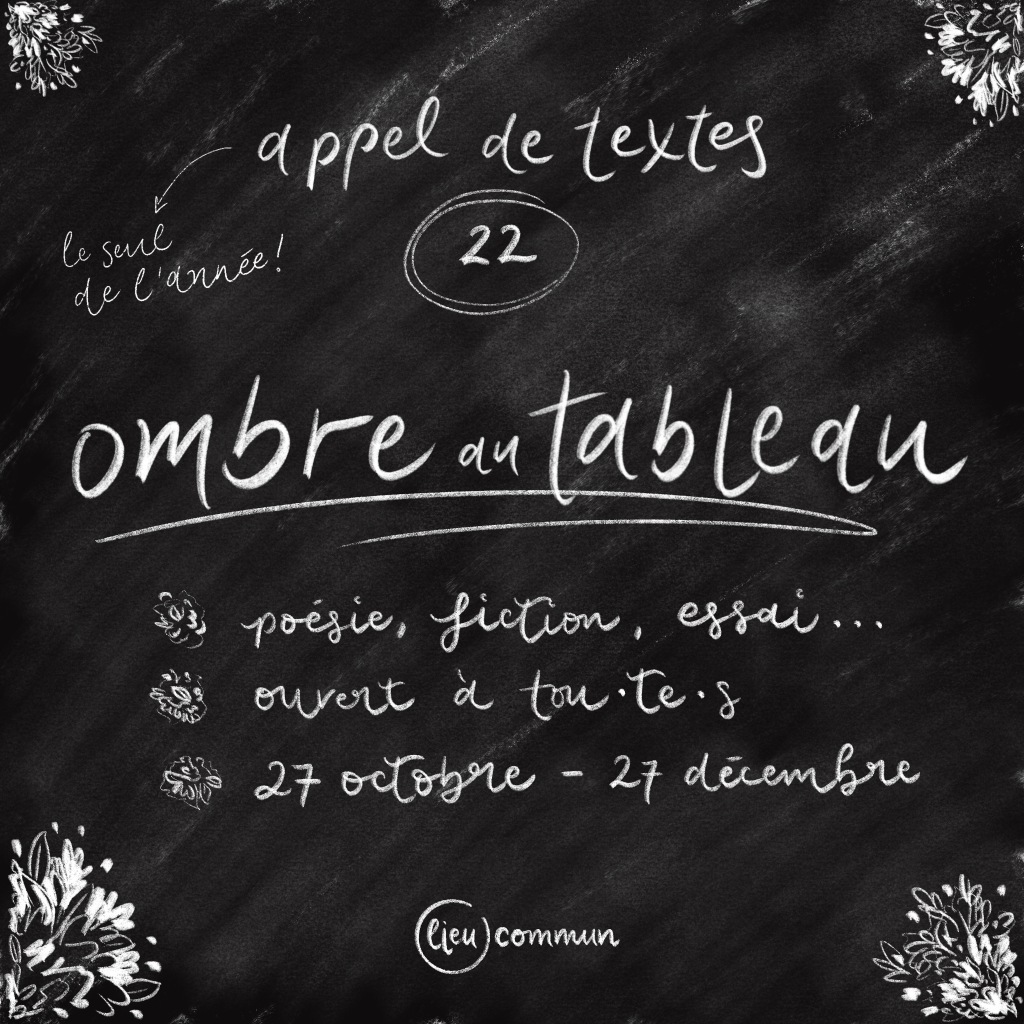 appel de textes
22
le seul
de l'année!
ombre au tableau
poésie, fiction, essai...
ouvert à tou·te·s
27 octobre - 27 décembre
(lieu) commun